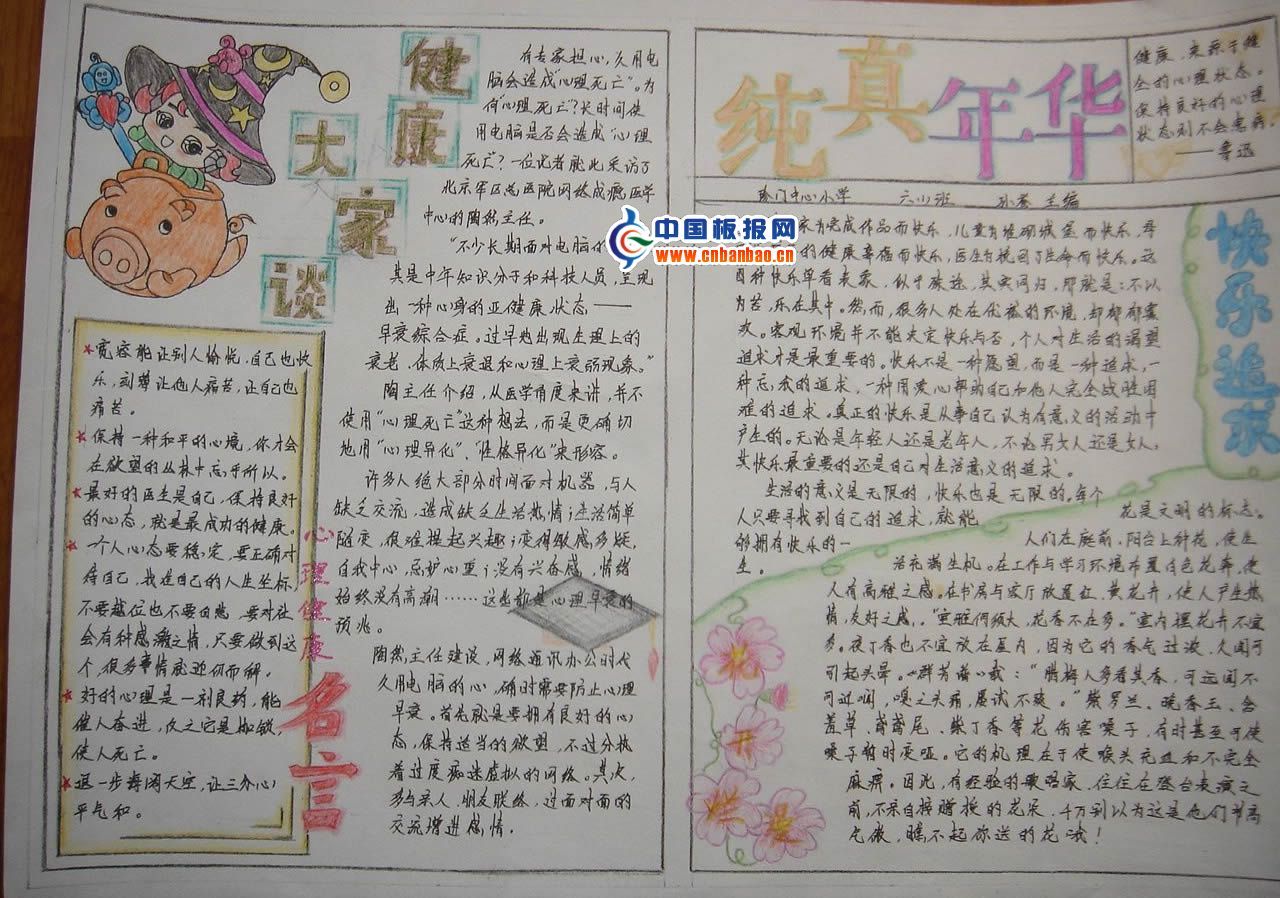 健康
大家谈
有专家担心,久用电
脑会造成"心理死亡"。为
何"心理死亡"?长时间使
用电脑是否会造成"心理
死亡"?一位记者就此采访了
北京军区总医院网络成瘾医学
中心的陶然主任。
"不少长期面对电脑的
其是中年知识分子和科技人员,呈现
出一种心身的亚健康状态——
早衰综合症。过早地出现生理上的
衰老、体质上衰退和心理上衰弱现象。"
陶主任介绍,从医学角度来讲,并不
使用"心理死亡"这种想法,而是更确切
地用"心理异化"、"性格异化"来形容。
许多人绝大部分时间面对机器,与人
缺乏交流,造成缺乏生活热情;生活简单
随变,很难提起兴趣;变得敏感多疑,
自我中心,忌妒心重;没有兴奋感,情绪
始终没有高潮……这些都是心理早衰的
预兆。
陶然主任建议,网络通讯办公时代
久用电脑的心,确时需要防止心理
早衰。首先就是要拥有良好的心
态,保持适当的欲望,不过分执
着过度痴迷虚拟的网络。其次,
多与亲人、朋友联络,过面对面的
交流增进感情。
★宽容能让别人愉悦,自己也快
乐,刻薄让他人痛苦,让自己也
痛苦。
★保持一种和平的心境,你才会
在欲望的丛林中忘乎所以。
★最好的医生是自己,保持良好
的心态,就是最成功的健康。
★一个人心态要稳定,要正确对
待自己,找准自己的人生坐标,
不要越位也不要自悲,要对社
会有种感激之情,只要做到这
个,很多事情就迎仞而解。
★好的心理是一剂良药,能
催人奋进,反之它是枷锁,
使人死亡。
★退一步海阔天空,让三分心
平气和。
心理健康
名言
纯真年华
健康,来源于健
全的心理状态。
保持良好的心理
状态则不会患病。
——鲁迅
中心小学 六(1)班 主编
中国板报网
www.cnbanbao.cn
快乐追求
家为完成作品而快乐,儿童为堆砌城堡而快乐,母
的健康幸福而快乐,医生为挽回了生命而快乐。这
四种快乐单看表象,似乎殊途,其实同归,那就是:不以
为苦,乐在其中。然而,很多人处在优裕的环境,却郁郁寡
欢。客观环境并不能决定快乐与否,个人对生活的渴望
追求才是最重要的。快乐不是一种愿望,而是一种追求,一
种忘我的追求,一种用爱心帮助自己和他人完全战胜困
难的追求。真正的快乐是从事自己认为有意义的活动中
产生的。无论是年轻人还是老年人,不论男女人还是女人,
其快乐最重要的还是自己对生活意义的追求。
生活的意义是无限的,快乐也是无限的。每个
人只要寻找到自己的追求,就能
够拥有快乐的一
生。
花是文明的标志。
人们在庭前、阳台上种花,使生
活充满生机。在工作与学习环境布置白色花卉,使
人有高雅之感。在书房与客厅放置红、黄花卉,使人产生热
情,友好之感。"室雅何须大,花香不在多。"室内摆花卉不宜
多。夜丁香也不宜放在屋内,因为它的香气过浓,久闻可
引起头晕。《群芳谱》载:"腊梅人多看其香,可远闻不
可近嗅,嗅之头痛,屡试不爽。"紫罗兰、晚香玉、含
羞草、鸢鸢尾、紫丁香等花伤害嗓子,有时甚至可使
嗓子暂时变哑。它的机理在于使喉头充血和不完全
麻痹。因此,有经验的歌唱家,往往在登台表演之
前,不亲自接赠授的花朵,千万别以为这是他们节高
气傲,瞧不起你送的花哦!